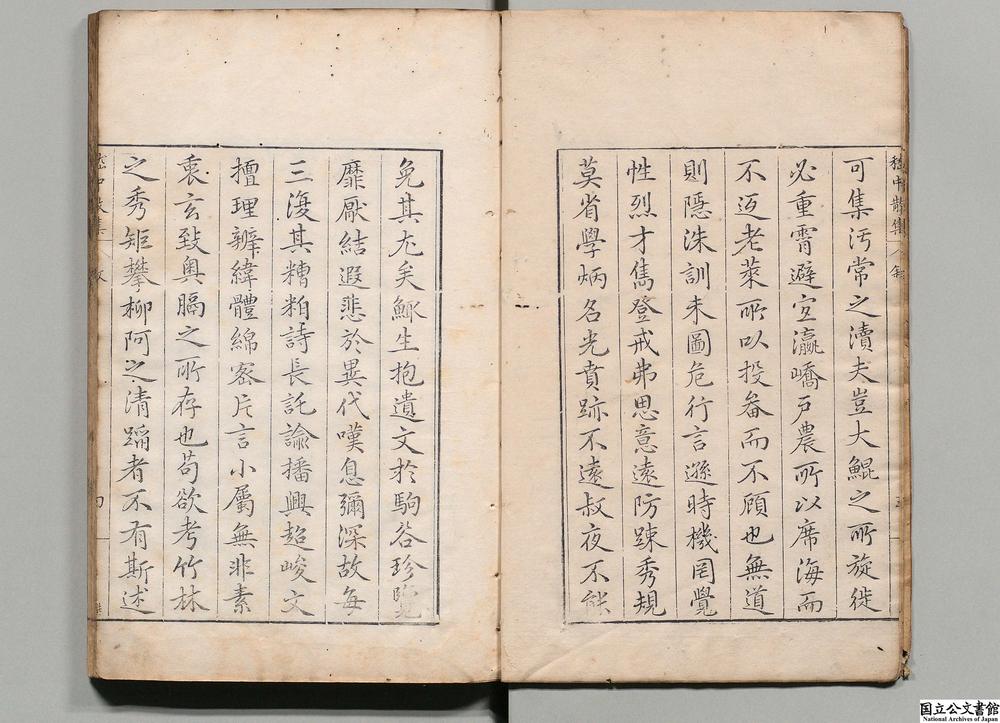 嵇中散集
可集汚常之瀆夫豈大鯤之所旋徙
必重霄避㝎瀛嶠戸農所以席海而
不返老萊所以投畚而不顧也無道
則隱洙訓未圖危行言遜時機罔覺
性烈才雋登戒弗思意遠防踈秀規
莫省學炳名光賁跡不遠叔夜不能
免其尤矣鯫生抱遺文於駒谷珍覽
靡厭結遐悲於異代嘆息彌深故每
三復其糟粕詩長託諭播興超峻文
擅理辨緯體綿密片言小屬無非素
衷玄致奥膈之所存也苟欲考竹林
之秀矩攀柳阿之清躅者不有斯述
国立公文書館
National Archives of Japan